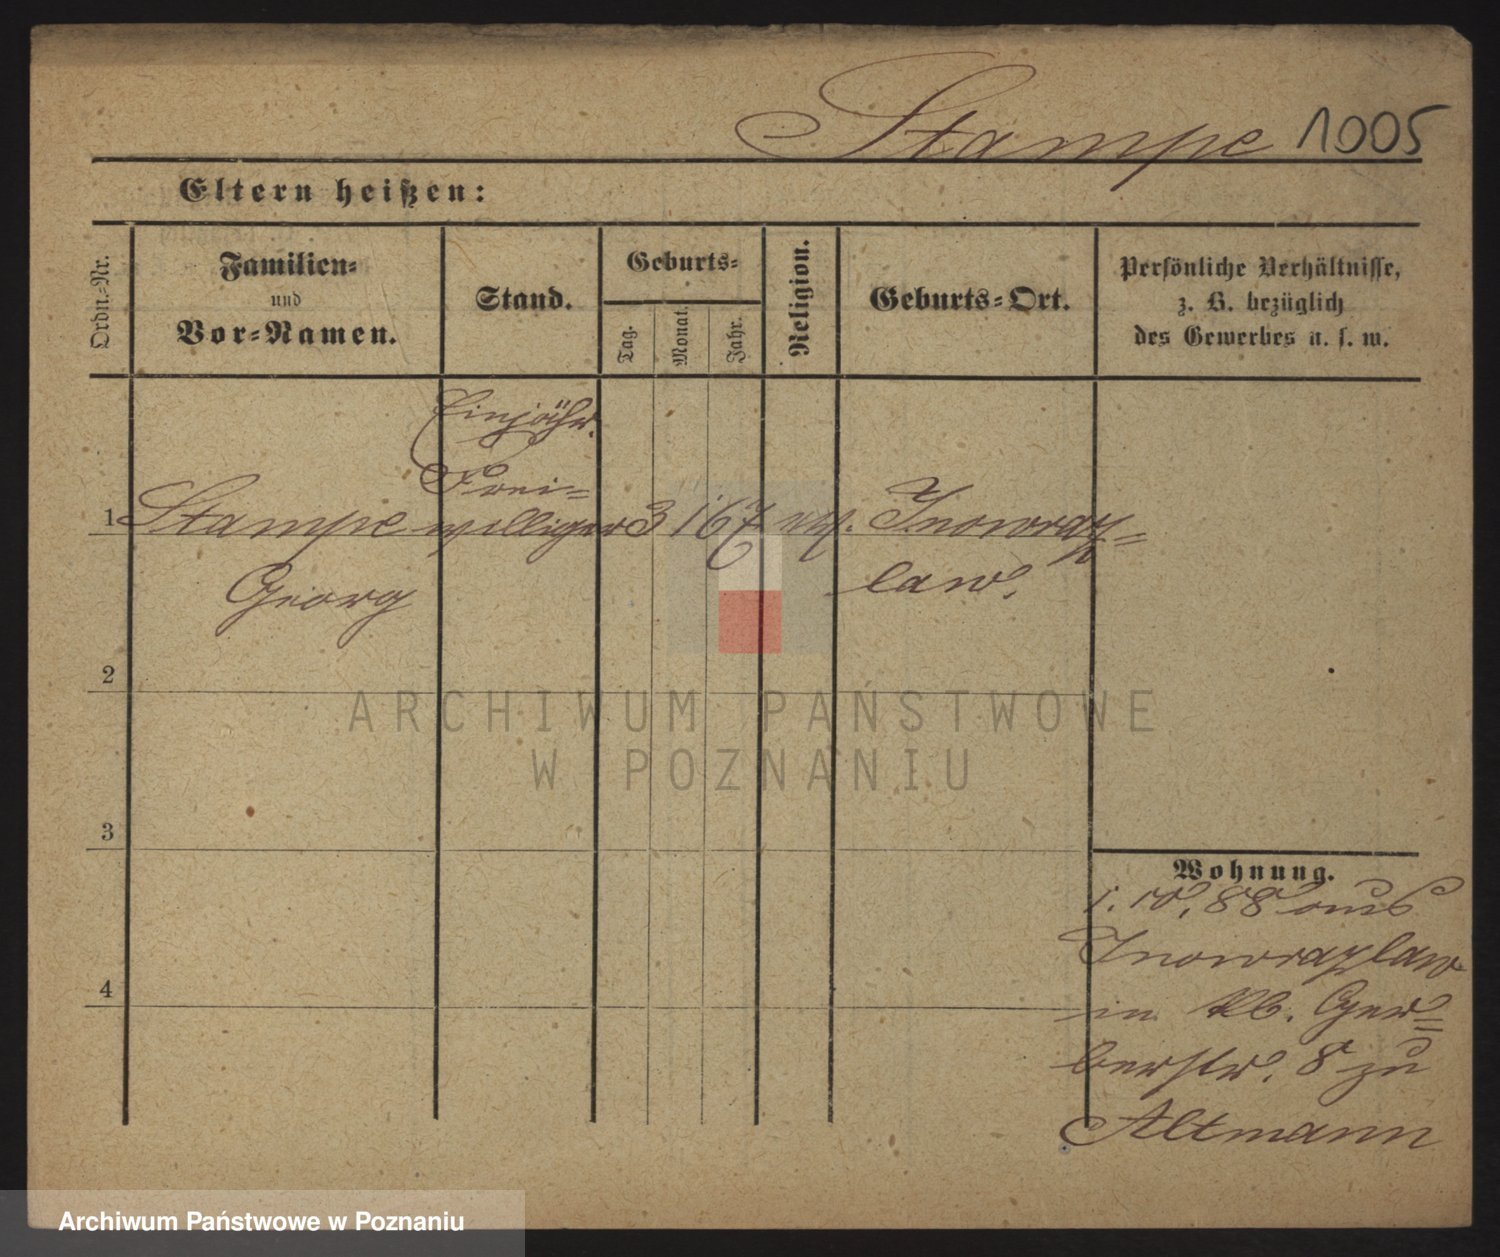 Stampe 1005
Eltern heißen:
Ordn.-Nr.
Familien-
und
Vor-Namen.
Stand.
Geburts-
Tag.
Monat.
Jahr.
Religion.
Geburts-Ort.
Persönliche Verhältnisse,
z. B. bezüglich
des Gewerbes u. s. w.
Einjähr.
Frei-
1 Stampe williger 3 1 67 ev. Inowraz-
Georg law.
2
3
4
Wohnung.
1. 10. 88 aus
Inowrazlaw
in Ab. Ger-
berstr. 8 zu
Altmann
ARCHIWUM PAŃSTWOWE
W POZNANIU
Archiwum Państwowe w Poznaniu